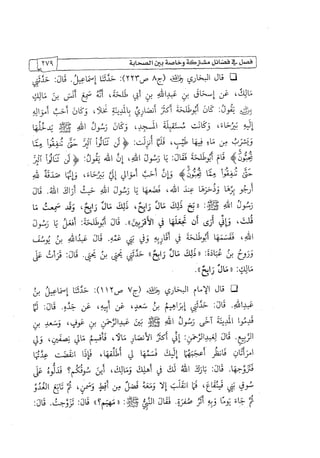 فصل في فضائل مشتركة وخاصة بين الصحابة ٢٧٩
قال البخاري رحمه الله (ج٨ ص٢٢٣): حَدَّثَنَا إِسْمَاعِيلُ. قَالَ: حَدَّثَنِي
مَالِكٌ، عَنْ إِسْحَاقَ بْنِ عَبْدِاللهِ بْنِ أَبِي طَلْحَةَ، أَنَّهُ سَمِعَ أَنَسَ بْنَ مَالِكٍ
يَقُولُ: كَانَ أَبُوطَلْحَةَ أَكْثَرَ أَنْصَارِيٍّ بِالْمَدِينَةِ نَخْلًا، وَكَانَ أَحَبَّ أَمْوَالِهِ
إِلَيْهِ بَيْرُحَاءَ، وَكَانَتْ مُسْتَقْبِلَةَ الْمَسْجِدِ، وَكَانَ رَسُولُ اللهِ ﷺ يَدْخُلُهَا
وَيَشْرَبُ مِنْ مَاءٍ فِيهَا طَيِّبٍ، فَلَمَّا أُنْزِلَتْ: ﴿لَن تَنَالُوا الْبِرَّ حَتَّى تُنفِقُوا مِمَّا
تُحِبُّونَ﴾ قَامَ أَبُوطَلْحَةَ فَقَالَ: يَا رَسُولَ اللهِ، إِنَّ اللهَ يَقُولُ: ﴿لَن تَنَالُوا الْبِرَّ
حَتَّى تُنفِقُوا مِمَّا تُحِبُّونَ﴾ وَإِنَّ أَحَبَّ أَمْوَالِي إِلَيَّ بَيْرُحَاءَ، وَإِنَّهَا صَدَقَةٌ لِلهِ
أَرْجُو بِرَّهَا وَذُخْرَهَا عِنْدَ اللهِ، فَضَعْهَا يَا رَسُولَ اللهِ حَيْثُ أَرَاكَ اللهُ. قَالَ
رَسُولُ اللهِ ﷺ: «بَخْ ذَلِكَ مَالٌ رَايِحٌ، ذَلِكَ مَالٌ رَايِحٌ، وَقَدْ سَمِعْتُ مَا
قُلْتَ، وَإِنِّي أَرَى أَنْ تَجْعَلَهَا فِي الْأَقْرَبِينَ». قَالَ أَبُوطَلْحَةَ: أَفْعَلُ يَا رَسُولَ
اللهِ، فَقَسَمَهَا أَبُوطَلْحَةَ فِي أَقَارِبِهِ وَفِي بَنِي عَمِّهِ. قَالَ عَبْدُاللهِ بْنُ يُوسُفَ
وَرَوْحُ بْنُ عُبَادَةَ: «ذَلِكَ مَالٌ رَابِحٌ». حَدَّثَنِي يَحْيَى بْنُ يَحْيَى. قَالَ: قَرَأْتُ عَلَى
مَالِكٍ: «مَالٌ رَايِحٌ».
قال الإمام البخاري رحمه الله (ج٧ ص١١٢): حَدَّثَنَا إِسْمَاعِيلُ بْنُ
عَبْدِاللهِ. قَالَ: حَدَّثَنِي إِبْرَاهِيمُ بْنُ سَعْدٍ، عَنْ أَبِيهِ، عَنْ جَدِّهِ. قَالَ: لَمَّا
قَدِمُوا الْمَدِينَةَ آخَى رَسُولُ اللهِ ﷺ بَيْنَ عَبْدِالرَّحْمَنِ بْنِ عَوْفٍ، وَسَعْدِ بْنِ
الرَّبِيعِ. قَالَ لِعَبْدِالرَّحْمَنِ: إِنِّي أَكْثَرُ الْأَنْصَارِ مَالًا، فَأَقْسِمُ مَالِي نِصْفَيْنِ، وَلِي
امْرَأَتَانِ فَانْظُرْ أَعْجَبَهُمَا إِلَيْكَ فَسَمِّهَا لِي أُطَلِّقْهَا، فَإِذَا انْقَضَتْ عِدَّتُهَا
فَتَزَوَّجْهَا. قَالَ: بَارَكَ اللهُ لَكَ فِي أَهْلِكَ وَمَالِكَ، أَيْنَ سُوقُكُمْ؟ فَدَلُّوهُ عَلَى
سُوقِ بَنِي قَيْنُقَاعَ، فَمَا انْقَلَبَ إِلَّا وَمَعَهُ فَضْلٌ مِنْ أَقِطٍ وَسَمْنٍ، ثُمَّ تَابَعَ الْغُدُوَّ
ثُمَّ جَاءَ يَوْمًا وَبِهِ أَثَرُ صُفْرَةٍ. فَقَالَ النَّبِيُّ ﷺ: «مَهْيَمْ؟» قَالَ: تَزَوَّجْتُ. قَالَ: